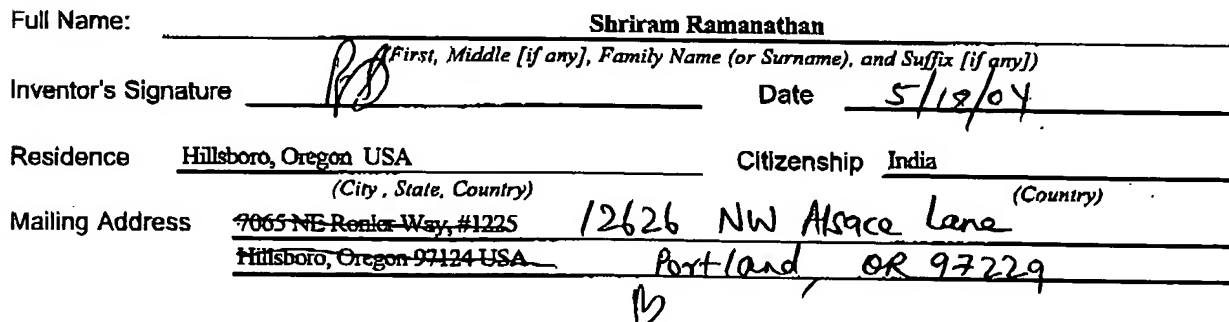 Full Name: Shriram Ramanathan
(First, Middle [if any], Family Name (or Surname), and Suffix [if any])
Inventor's Signature Date 5/18/04
Residence Hillsboro, Oregon USA Citizenship India
(City, State, Country) (Country)
Mailing Address 7065 NE Ronler Way, #1225 12626 NW Alsace Lane
Hillsboro, Oregon 97124 USA Portland, OR 97229